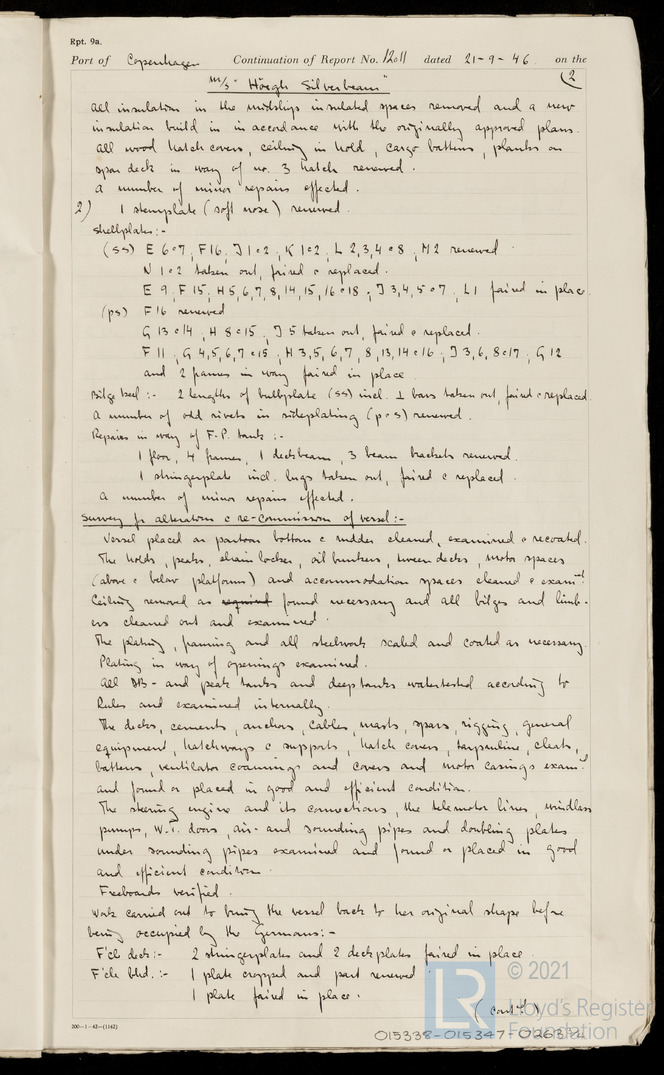 Rpt. 9a.
Port of Copenhagen Continuation of Report No. 12011 dated 21-9-46 on the
(2
m/s "Höegh Silverbeam"
All insulation in the midships insulated spaces removed and a new
insulation build in in accordance with the originally approved plans.
All wood hatch covers, ceiling in hold, cargo battens, planks on
spar deck in way of no. 3 hatch renewed.
A number of minor repairs effected.
2) 1 stemplate (soft nose) renewed.
Shellplates:-
(ss) E 6&7, F16, J 1&2, K 1&2, L 2,3,4&8, M2 renewed
N 1&2 taken out, faired & replaced.
E 9, F 15, H 5,6,7,8,14,15,16&18, J 3,4,5&7, L1 faired in place.
(ps) F16 renewed
G 13&14, H 8&15, J 5 taken out, faired & replaced.
F 11, G 4,5,6,7&15, H 3,5,6,7,8,13,14&16, J 3,6,8&17, G 12
and 2 frames in way faired in place
Bilge keel:- 2 lengths of bulbplate (ss) incl. ⊥ bars taken out, faired & replaced.
A number of old rivets in sideplating (p&s) renewed.
Repairs in way of F.P. tank:-
1 floor, 4 frames, 1 deckbeam, 3 beam brackets renewed.
1 stringerplate incl. lugs taken out, faired & replaced.
A number of minor repairs effected.
Survey for alteration & re-Commission of vessel:-
Vessel placed on pontoon bottom & rudder cleaned, examined & recoated.
The holds, peaks, chain locker, oil bunkers, tween decks, motor spaces
(above & below platforms) and accommodation spaces cleaned & exam.d
Ceiling removed as required found necessary and all bilges and limb-
ers cleaned out and examined.
The plating, framing and all steelwork scaled and coated as necessary.
Plating in way of openings examined.
All DB- and peak tanks and deeptanks watertested according to
Rules and examined internally.
The decks, cements, anchors, cables, masts, spars, rigging, general
equipment, hatchways & supports, hatch covers, tarpauline, cleats,
battens, ventilator coamings and covers and motor casings exam.d
and found or placed in good and efficient condition.
The steering engine and its connections, the telemotor lines, windlass
pumps, W.T. doors, air- and sounding pipes and doubling plates
under sounding pipes examined and found or placed in good
and efficient condition.
Freeboards verified.
Work carried out to bring the vessel back to her original shape before
being occupied by the Germans:-
F'cle deck:- 2 stringerplates and 2 deckplates faired in place.
F'cle bhd.:- 1 plate cropped and part renewed
1 plate faired in place.
(cont.d)
200—1—42—(1142)
LR
© 2021
Lloyd's Register
Foundation